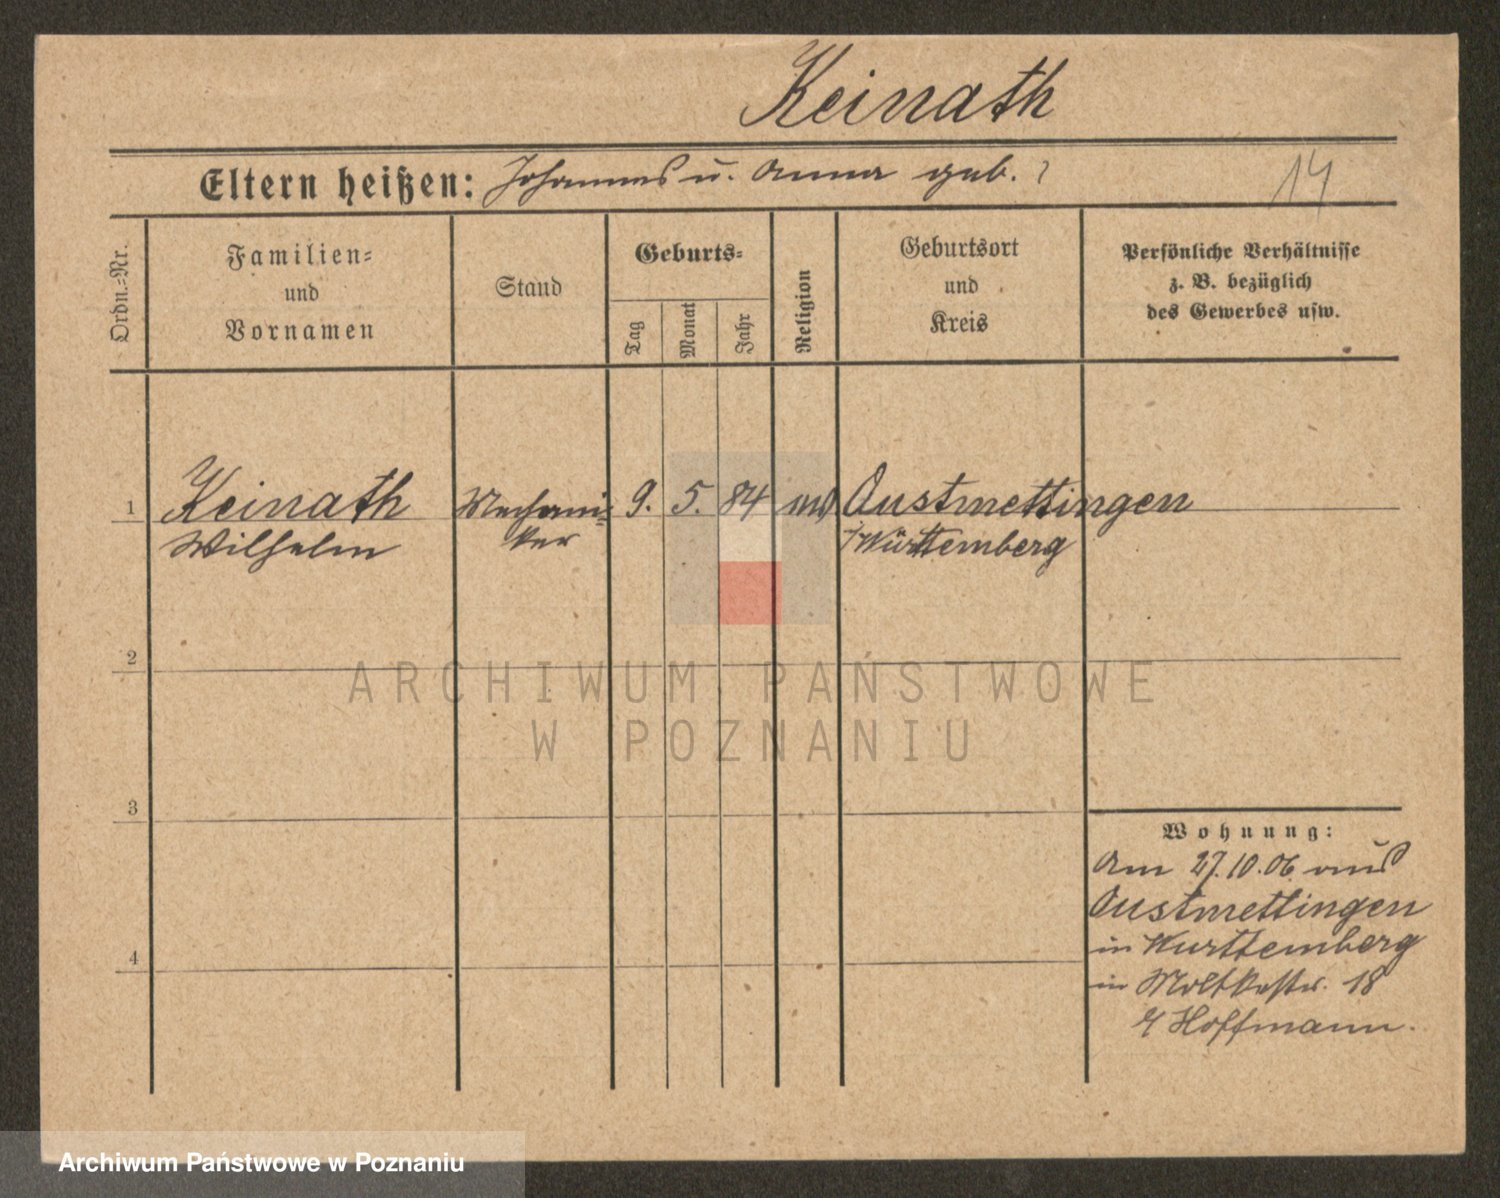 Keinath
Eltern heißen: Johannes u. Anna geb. ?
14
Ordn.=Nr.
Familien=
und
Vornamen
Stand
Geburts=
Tag
Monat
Jahr
Religion
Geburtsort
und
Kreis
Persönliche Verhältnisse
z. B. bezüglich
des Gewerbes usw.
1
Keinath
Wilhelm
Mechani=
ker
9. 5. 84
Oustmettingen
Württemberg
2
3
4
ARCHIWUM PAŃSTWOWE
W POZNANIU
Wohnung:
Am 27.10.06 aus
Oustmettingen
in Wurttemberg
in Moltkestr. 18
Hoffmann.
Archiwum Państwowe w Poznaniu